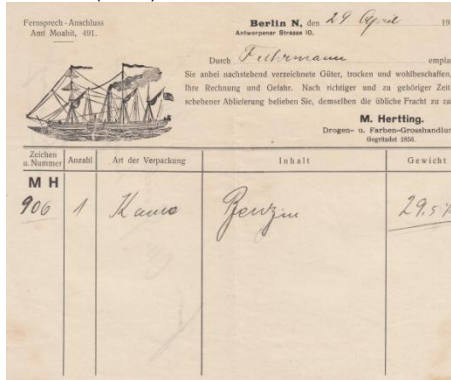 Fernsprech-Anschluss
Amt Moabit, 491.
Berlin N, den 29 April 19
Antwerpener Strasse 10.
Durch Fuhrmann empfa
Sie anbei nachstehend verzeichnete Güter, trocken und wohlbeschaffen,
Ihre Rechnung und Gefahr. Nach richtiger und zu gehöriger Zeit
schehener Ablieferung belieben Sie, demselben die übliche Fracht zu za
M. Hertting.
Drogen- u. Farben-Grosshandlun
Gegründet 1856.
Zeichen u. Nummer Anzahl Art der Verpackung Inhalt Gewicht
M H
906 1 Kanne Benzin 29,5